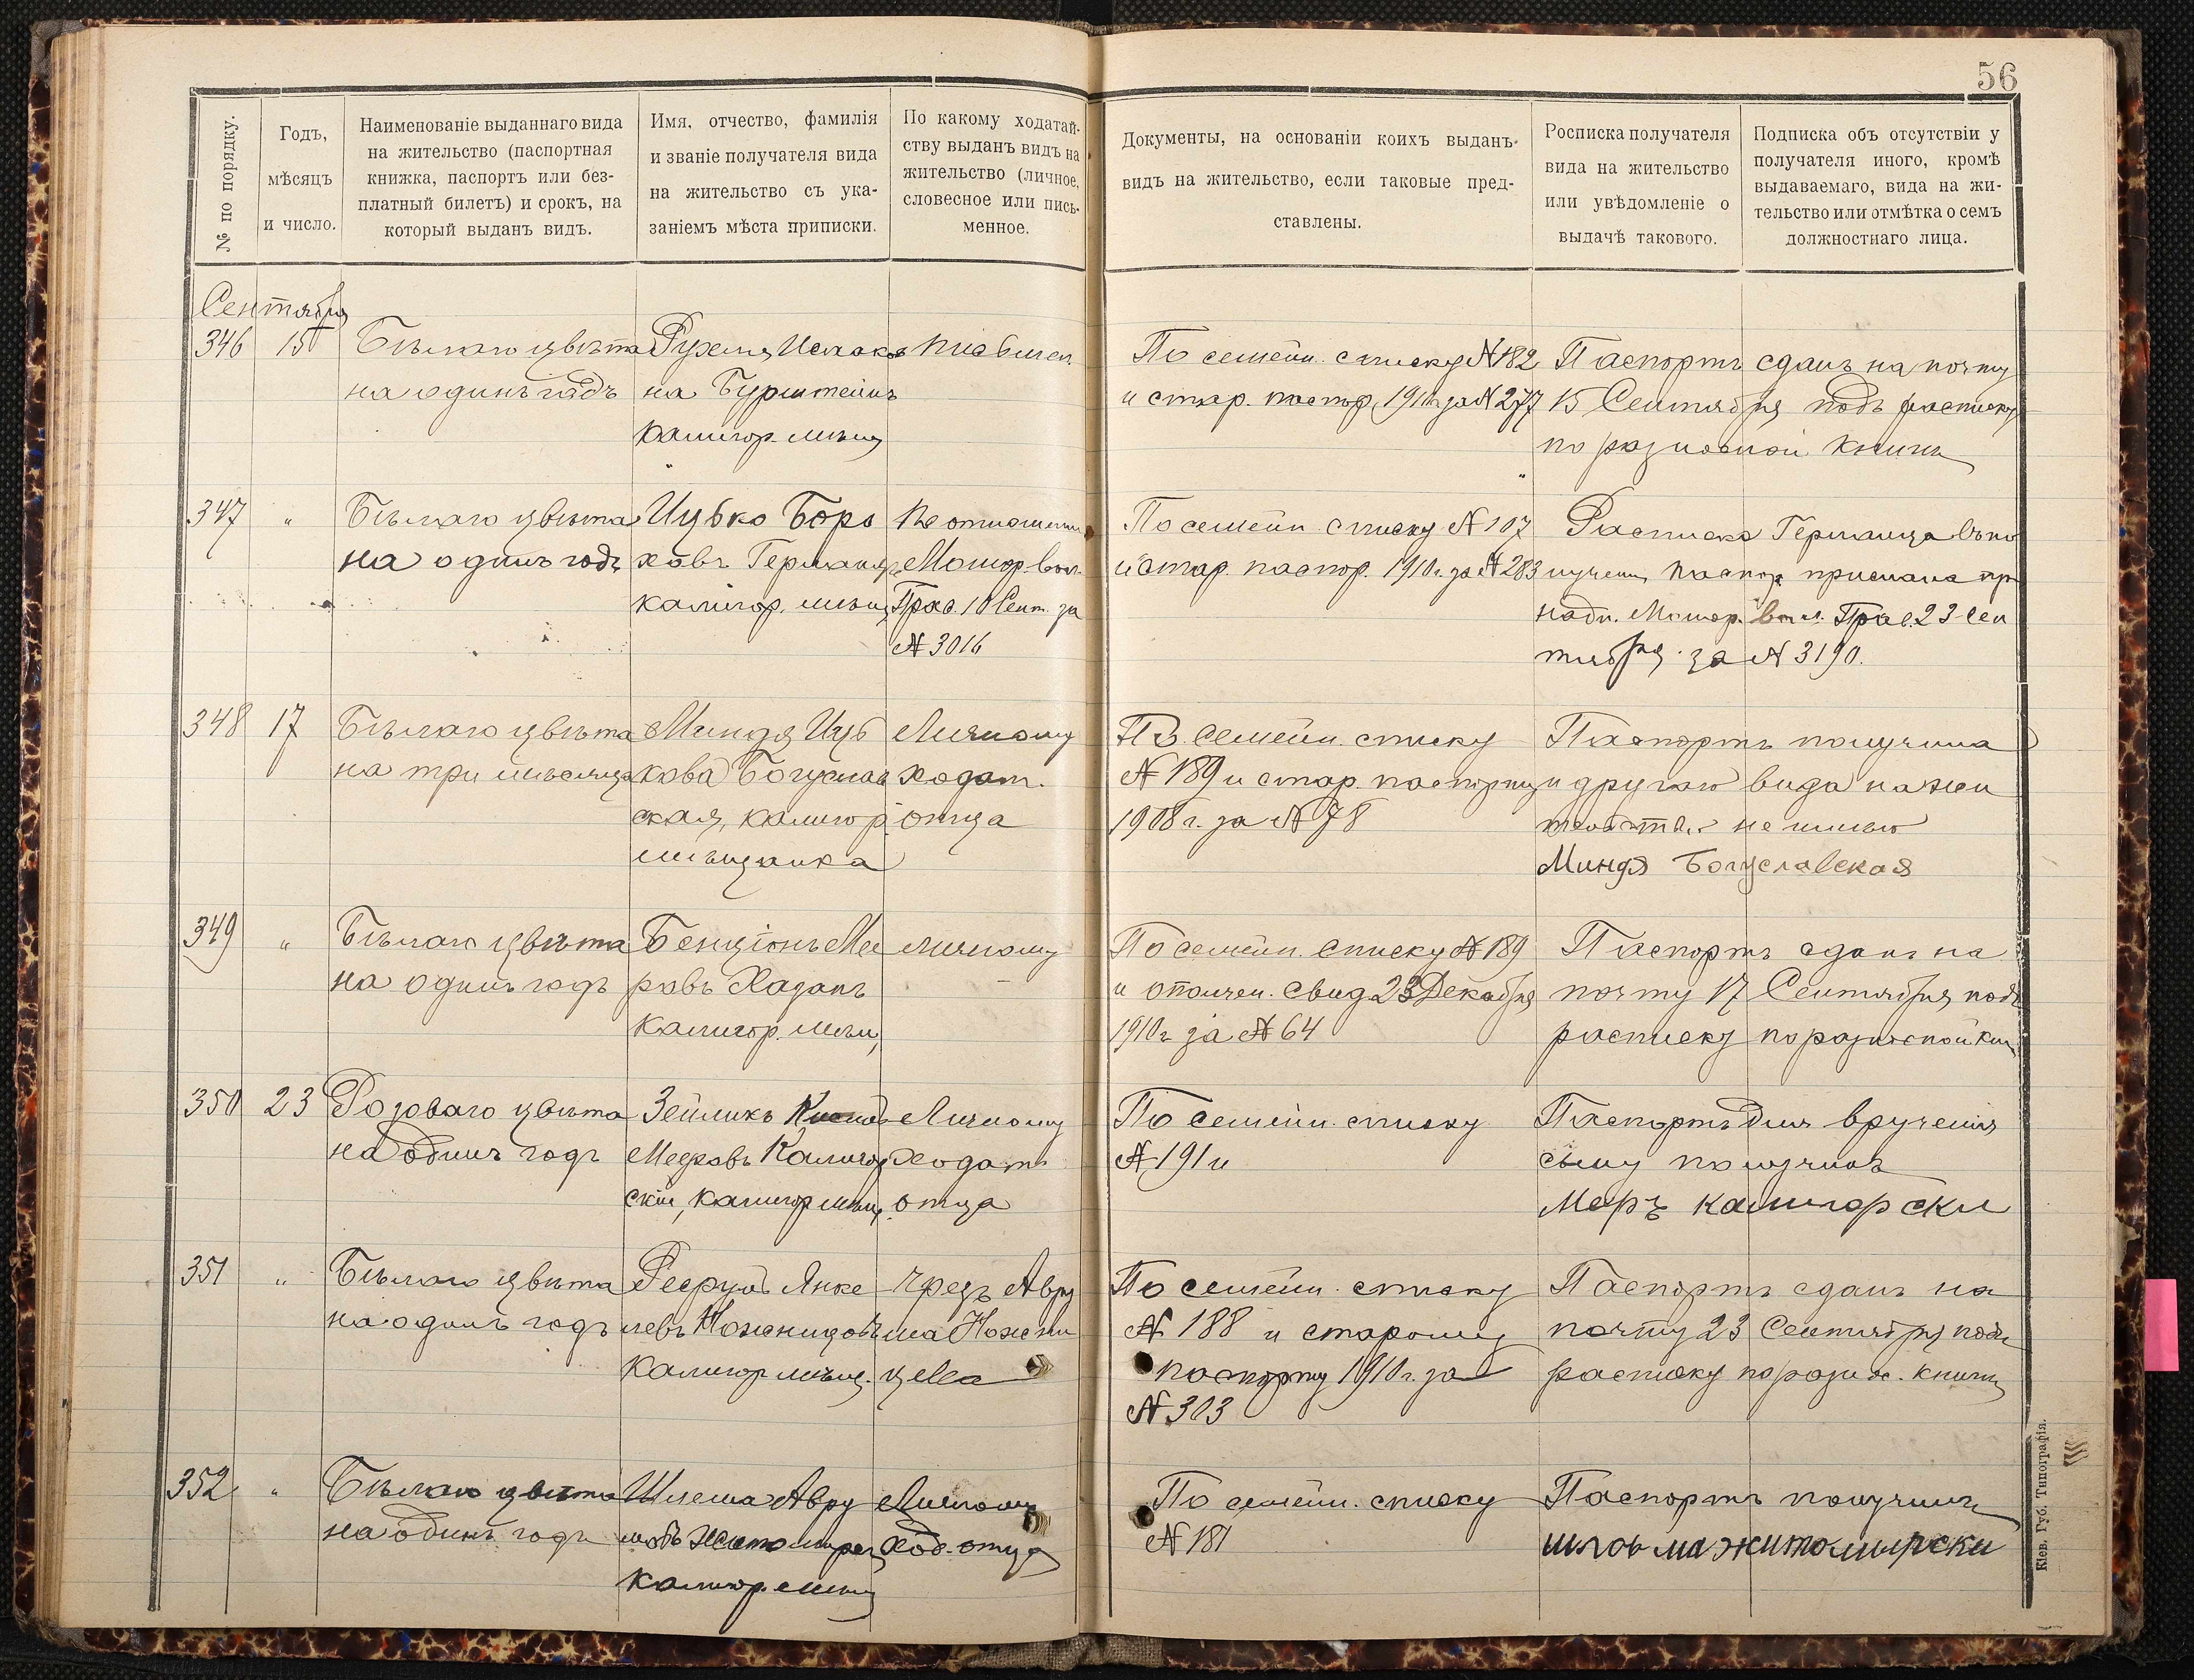 56
№ по порядку.
Годъ,
мѣсяцъ
и число.
Наименованіе выданнаго вида
на жительство (паспортная
книжка, паспортъ или без-
платный билетъ) и срокъ, на
который выданъ видъ.
Имя, отчество, фамилія
и званіе получателя вида
на жительство съ ука-
заніемъ мѣста приписки.
По какому ходатай-
ству выданъ видъ на
жительство (личное,
словесное или пись-
менное.
Документы, на основаніи коихъ выданъ
видъ на жительство, если таковые пред-
ставлены.
Росписка получателя
вида на жительство
или увѣдомленіе о
выдачѣ такового.
Подписка объ отсутствіи у
получателя иного, кромѣ
выдаваемаго, вида на жи-
тельство или отмѣтка о семъ
должностнаго лица.
Сентября
346 15 Бѣлаго цвѣта
на одинъ годъ
на Бурштейнъ
калигор. мѣщ
По семейн. списку № 182
и стар. паспор. 1910 г. за № 277
Паспортъ сданъ на почту
15 Сентября подъ расписку
по разносной книгѣ
347 " Бѣлаго цвѣта
на одинъ годъ
Ицько Боро
ховъ Германъ
калигор. мѣщ
По отношенію
Мошор. Вол.
Прав. 10 Сент. за
№ 3016
По семейн. списку № 107
и стар. паспор. 1910 г. за № 283
Расписка Германца въ по
лученіи паспор прислана при
надп. Мошор. Вол. Прав. 23 Сен
тября за № 3190.
348 17 Бѣлаго цвѣта
на три мѣсяца
Миндя Иць
кова Богуслав
ская, калигор
мѣщанка
Личному
ходат.
отца
По семейн. списку
№ 189 и стар. паспорту
1908 г. за № 78
Паспортъ получила
и другаго вида на жи
тельства не имѣю
Миндя Богуславская
349 " Бѣлаго цвѣта
на одинъ годъ
Бенціонъ Ме
ровъ Хазанъ
калигор. мѣщ,
личному
По семейн. списку № 189
и ополчен. свид. 23 Декабря
1910 г. за № 64
Паспортъ сданъ на
почту 17 Сентября подъ
расписку по разносной кни
350 23 Розоваго цвѣта
на одинъ годъ
Зейликъ
Мееровъ Калигор
скій, калигор мѣщ.
Личному
ходат
отца
По семейн. списку
№ 191 и
Паспортъ для врученія
сыну получилъ
Меръ калигорски
351 " Бѣлаго цвѣта
на одинъ годъ
Янке
левъ Ноженицовъ
калигор мѣщ.
чрезъ Авру
ма Ножени
цева
По семейн. списку
№ 188 и старому
паспорту 1910 г. за
№ 303
Паспортъ сданъ на
почту 23 Сентября подъ
расписку по разнос. книгѣ
352 " Бѣлаго цвѣта
на одинъ годъ
Шлема Авру
мовъ Житомирск
калигор. мѣщ
Личному
ход. отца
По семейн. списку
№ 181
Паспортъ получилъ
шловма житомирски
Кіев. Губ. Типографія.